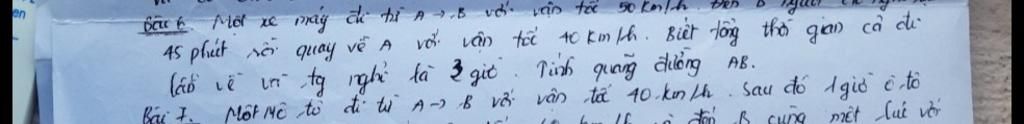 Bài 6. Một xe máy đi từ A → B với vận tốc 50 km/h. Đến B người
45 phút rồi quay về A với vận tốc 40 km/h. Biết tổng thời gian cả đi
lẫn về và tg nghỉ là 3 giờ. Tính quãng đường AB.
Bài 7. Một Mô tô đi từ A → B với vận tốc 40 km/h. Sau đó 1 giờ ô tô
đến B cùng một lúc với